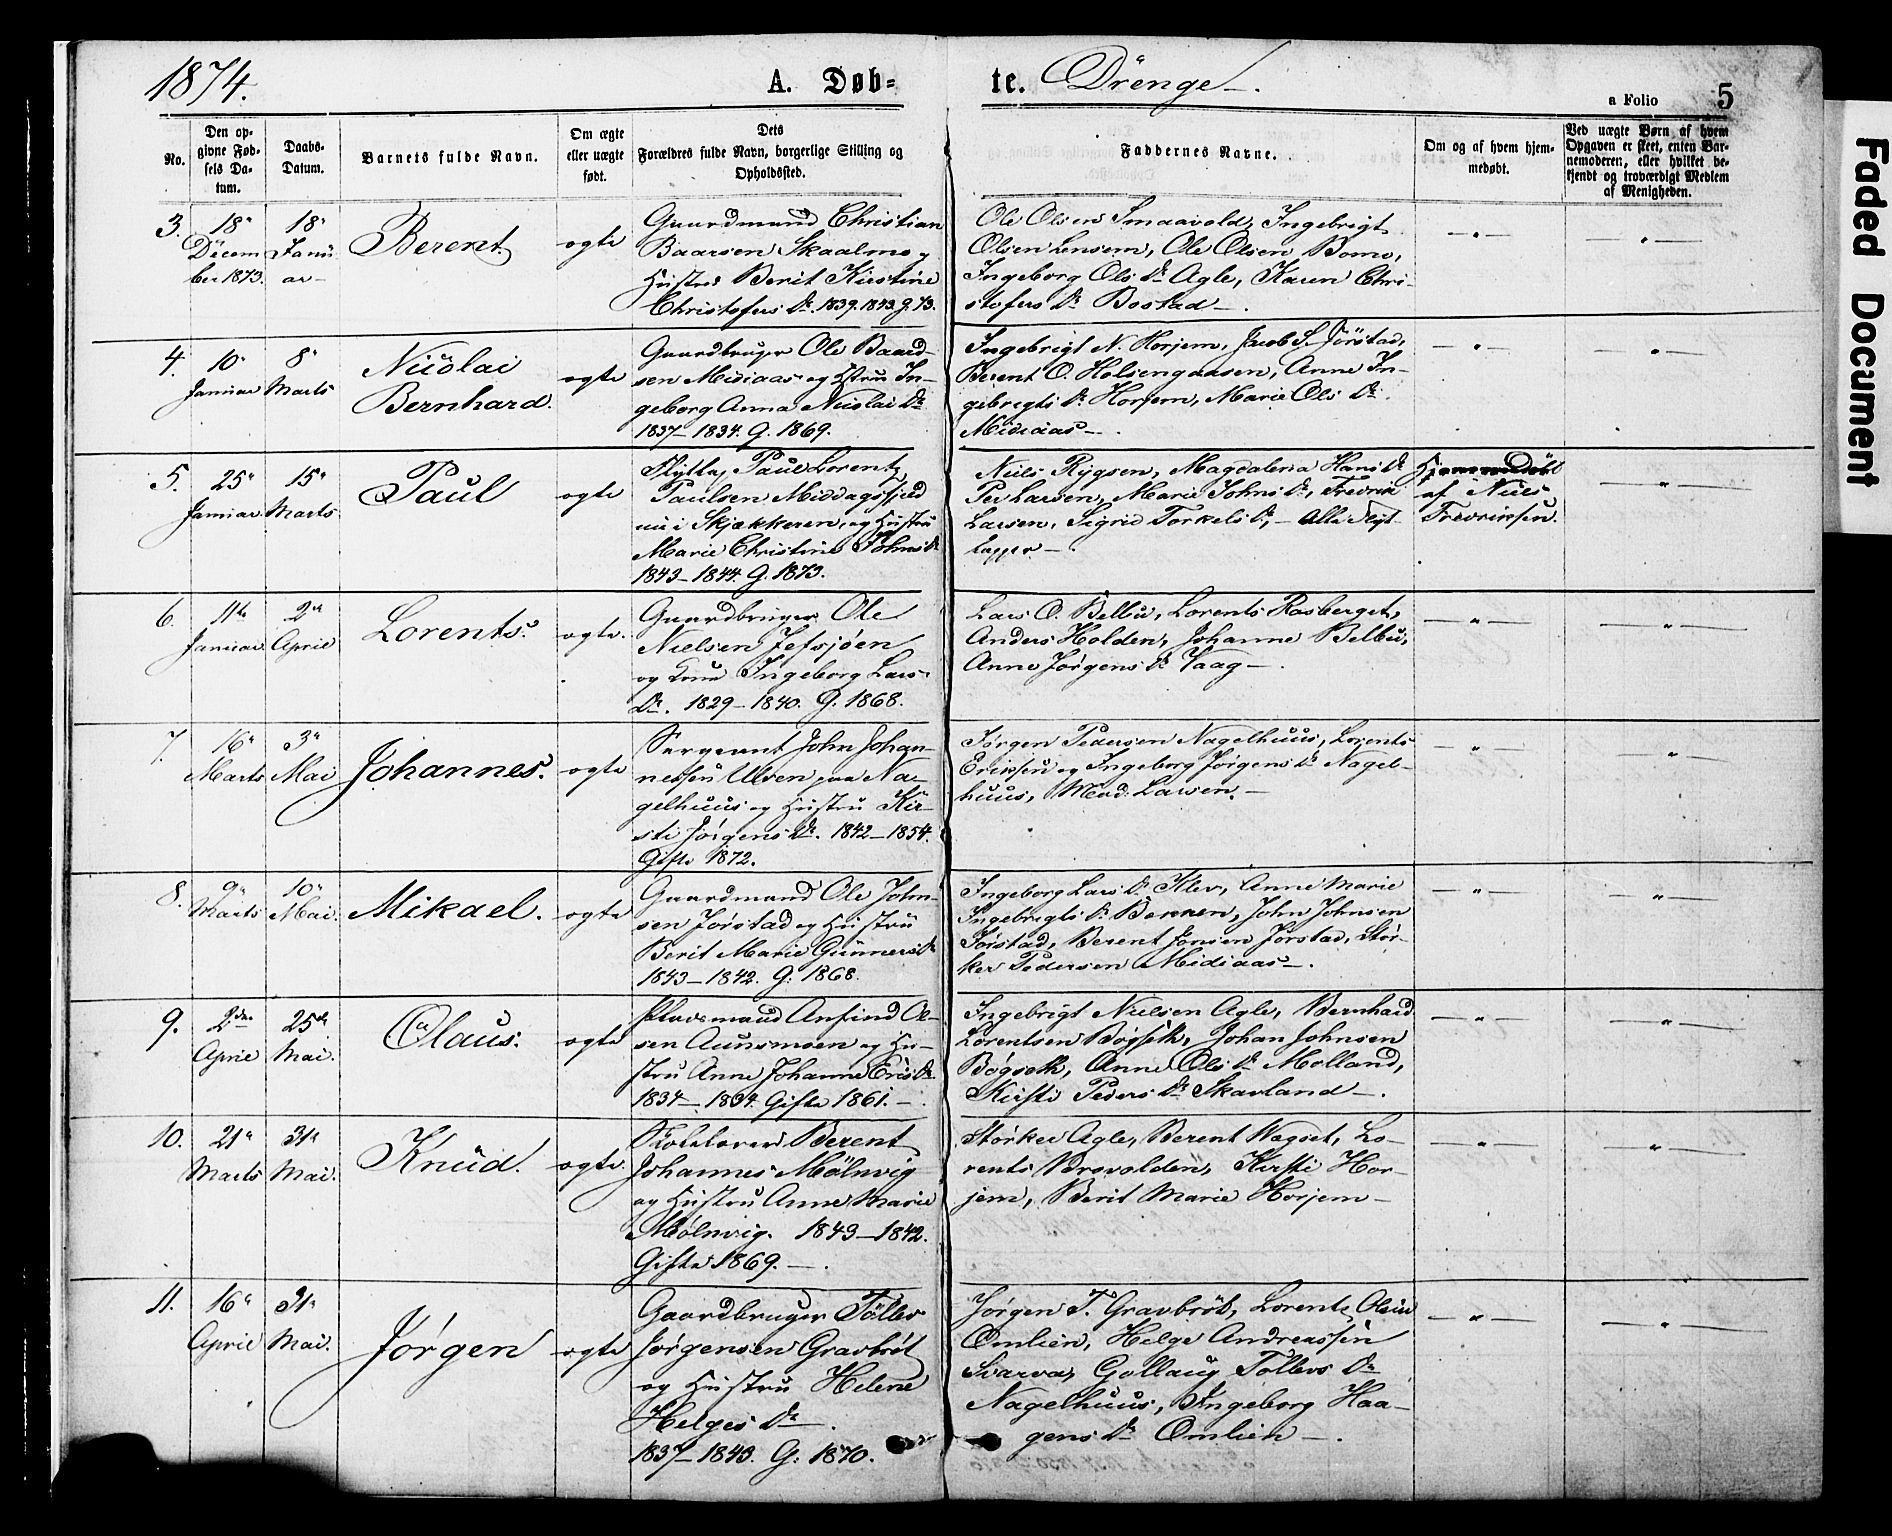 1874.
A. Døb=
te. Drenge
a Folio 5
No.
Den op-
givne Fød-
sels Da-
tum.
Daabs-
Datum.
Barnets fulde Navn.
Om ægte
eller uægte
født.
Dets
Forældres fulde Navn, borgerlige Stilling og
Opholdssted.
Faddernes Navne.
Om og af hvem hjem-
medøbt.
Ved uægte Børn af hvem
Opgaven er skeet, enten Bar-
nemoderen, eller hvilket be-
kjendt og troværdigt Medlem
af Menigheden.
3.
18de
Decem
ber 1873.
18de
Janu
ar
Berent.
ægte
Gaardmand Christian
Baarsen Skaalmo og
Hustru Berit Kirstine
Christofers Dr. 1839. 1843. g. 73.
Ole Olsen Smaavold, Ingebrigt
Olsen Lensem, Ole Olsen Bomo,
Ingeborg Ols Dr Agle, Karen Chri-
stofers Dr Bostad
4.
10de
Januar
8de
Marts
Nicolai
Bernhard.
ægte
Gaardbruger Ole Baard-
sen Midiaas og Hstru In-
geborg Anna Nicolai Dr
1837 – 1834. G. 1869.
Ingebrigt N. Horjem, Jacob S. Jörstad,
Berent O. Holsengaasen, Anne In-
gebrigts Dr Horjem, Marie Ols Dr
Midiaas
5.
25de
Januar
15de
Marts
Paul
ægte
Flytlap Paul Lorentz
Paulsen Middagsfjeld
nu i Skjækkeren, og Hustru
Marie Christine Johns Dr
1843 – 1844. G. 1873.
Niels Magdalena Hans Dr
Per Larsen, Marie Johns Dr, Fredrik
Larsen, Sigrid Torkels Dr, – Alle Flyt-
lapper
Hjemmedöbt
af Niels
Fredriksen.
6.
11te
Januar
2den
April
Lorents.
ægte.
Gaardbruger Ole
Nielsen Jefsjøen
og Kone Ingeborg Lars
Dr. 1829 – 1840. G. 1868.
Lars O. Belbu, Lorents Rosberget,
Anders Holden, Johanne Belbu,
Anne Jørgens Dr Vaag
7.
16de
Marts
3de
Mai
Johannes.
ægte
Sergeant John Johan-
nessen Ulven paa Na-
gelhuus og Hustru Kir-
sti Jørgens Dr. 1842 – 1854.
Gifte 1872.
Jørgen Pedersen Nagelhuus, Lorents
Eriksen og Ingeborg Jørgens Dr Nagel-
huus, Mad: Larsen.
8.
9de
Marts
10de
Mai.
Mikael.
ægte
Gaardmand Ole John-
sen Jørstad og Hustru
Berit Marie Gunners Dr
1843 – 1842. G: 1868.
Ingeborg Lars Dr Klev, Anne Marie
Ingebrigts Dr Bekken, John Johnsen
Jørstad, Berent Jonsen Jørstad, Stör-
ker Pedersen Midiaas
9.
2den
April
25de
Mai.
Olaus.
ægte
Pladsmand Anfind Ol-
sen Aunsmoen og Hu-
stru Anne Johanne Eriks Dr
1834 – 1834. Gifte 1861.
Ingebrigt Nielsen Agle, Bernhard
Lorentsen Bøgseth, Johan Johnsen
Bøgseth, Anne Ols Dr Molland,
Kirsti Peders Dr Skavland
10.
21de
Marts
31te
Mai.
Knud.
ægte.
Skolelærer Berent
Johannes Mölnvig
og Hustru Anne Marie
Mølnvig. 1843 – 1842.
Gifte 1869.
Störker Agle, Berent Wegset, Lo-
rents Brovolden, Kirsti Hor-
jem, Berit Marie Horjem
11.
16de
April
31te
Mai.
Jørgen
ægte
Gaardbruger Tollev
Jørgensen Gravbröt
og Hustru Helene
Helges Dr
1837 – 1843. G: 1870.
Jørgen T. Gravbröt, Lorents Olsen
Omlien, Helge Andreassen
Svarva, Gollaug Tollevs Dr
Nagelhuus, Ingeborg Haa-
gens Dr Omlien
Faded Document